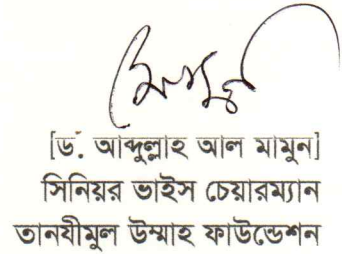 [ড. আব্দুল্লাহ আল মামুন]
সিনিয়র ভাইস চেয়ারম্যান
তানযীমুল উম্মাহ ফাউন্ডেশন